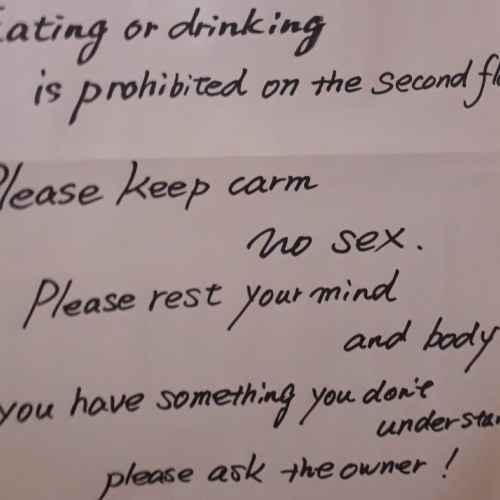 Eating or drinking
is prohibited on the second flo
Please keep carm
no sex.
Please rest your mind
and body
you have something you don't
understan
please ask the owner!